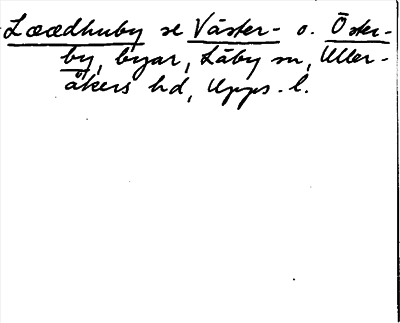 Lææedhuby se Väster- o. Öster-
by, byar, Läby sn, Uller-
åkers hd, Upps. l.